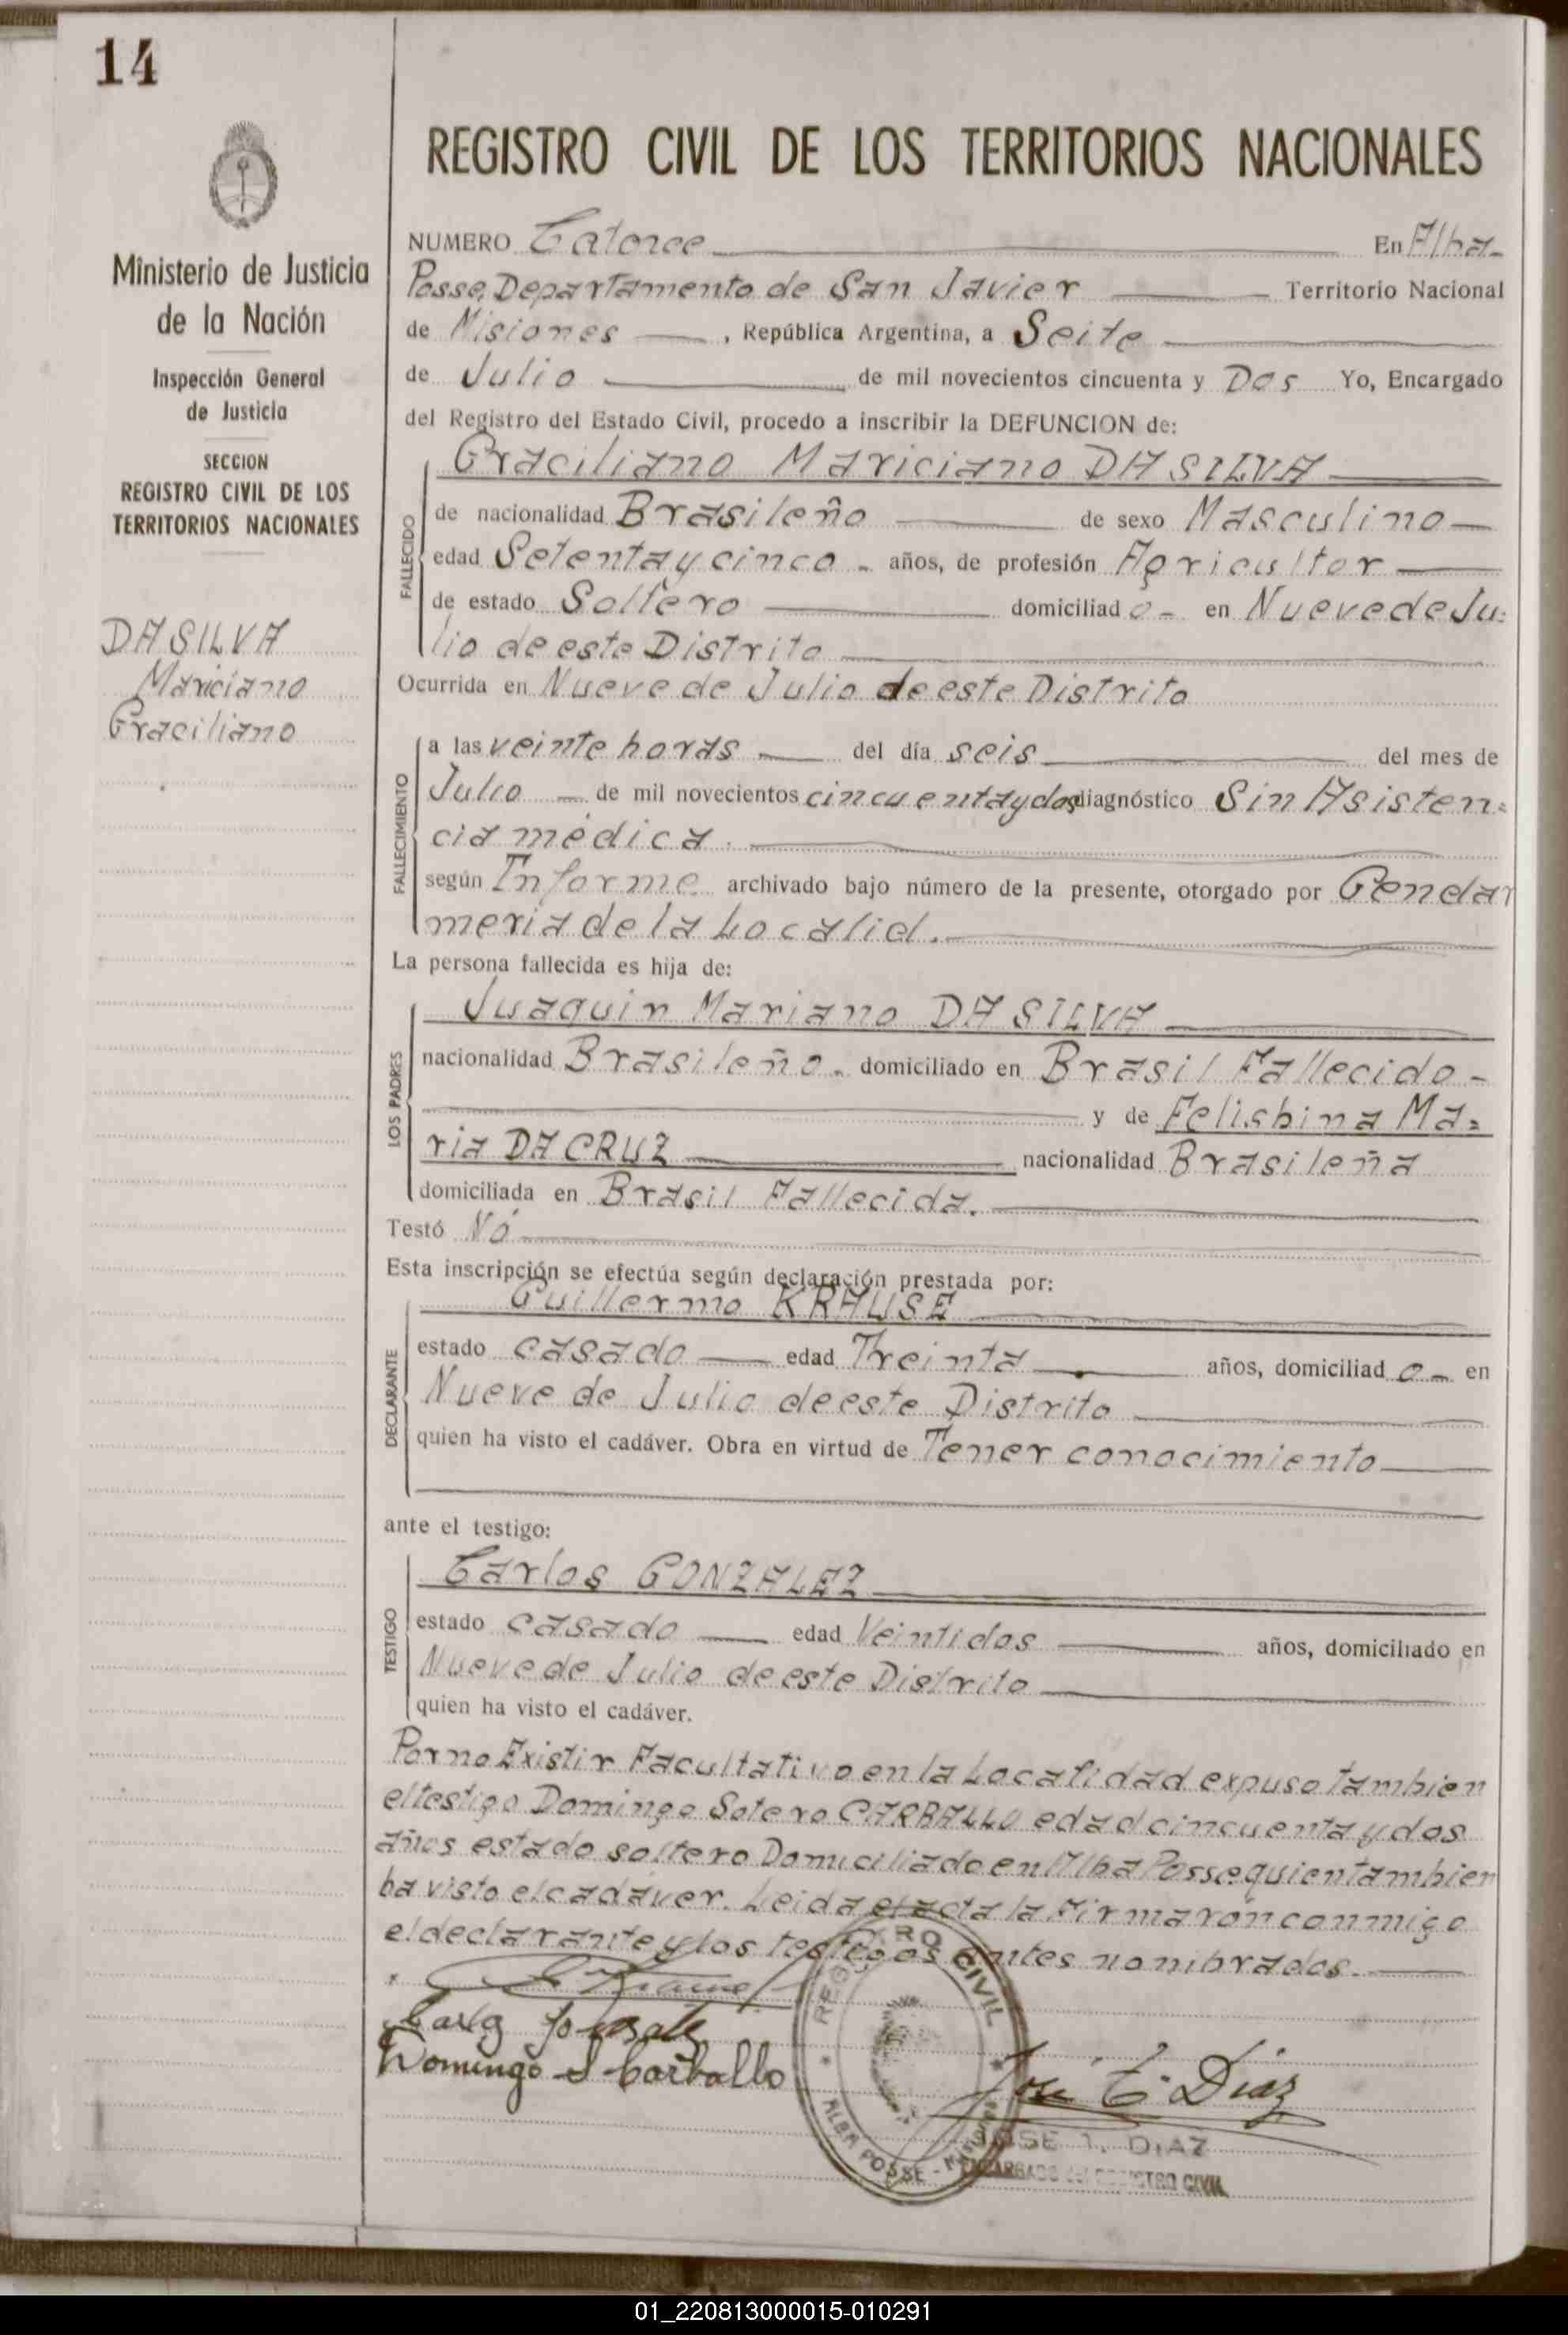 14
Ministerio de Justicia
de la Nación
Inspección General
de Justicia
SECCION
REGISTRO CIVIL DE LOS
TERRITORIOS NACIONALES
DA SILVA
Mariciano
Graciliano
REGISTRO CIVIL DE LOS TERRITORIOS NACIONALES
NUMERO Catorce En Alba-
Posse, Departamento de San Javier Territorio Nacional
de Misiones , República Argentina, a Seite
de Julio de mil novecientos cincuenta y Dos Yo, Encargado
del Registro del Estado Civil, procedo a inscribir la DEFUNCION de:
Graciliano Mariciano DA SILVA
FALLECIDO
de nacionalidad Brasileño de sexo Masculino
edad Setenta y cinco - años, de profesión Agricultor
de estado Soltero domiciliado - en Nueve de Ju=
lio de este Distrito
Ocurrida en Nueve de Julio de este Distrito
FALLECIMIENTO
a las veinte horas del día seis del mes de
Julio de mil novecientos cincuenta y dos diagnóstico Sin Asisten=
cia médica.
según Informe archivado bajo número de la presente, otorgado por Gendar
meria de la Localid.
La persona fallecida es hija de:
LOS PADRES
Juaquin Mariano DA SILVA
nacionalidad Brasileño - domiciliado en Brasil Fallecido -
y de Felisbina Ma=
ria DA CRUZ nacionalidad Brasileña
domiciliada en Brasil Fallecida.
Testó Nó
Esta inscripción se efectúa según declaración prestada por:
DECLARANTE
Guillermo KRAUSE
estado casado edad Treinta años, domiciliado - en
Nueve de Julio de este Distrito
quien ha visto el cadáver. Obra en virtud de Tener conocimiento
ante el testigo:
TESTIGO
Carlos GONZALEZ
estado casado edad Veintidos años, domiciliado en
Nueve de Julio de este Distrito
quien ha visto el cadáver.
Por no Existir Facultativo en la Localidad expuso tambien
el testigo Domingo Sotero CARBALLO edad cincuenta y dos
años estado soltero Domiciliado en Alba Posse quien tambien
ha visto el cadáver. Leida el acta la Firmaron conmigo
el declarante y los testigos antes nombrados.
G Krause
Carlos Gonzalez
Domingo S Carballo
REGISTRO CIVIL
ALBA POSSE - Misiones
Jose T. Diaz
JOSE T. DIAZ
ENCARGADO DEL REGISTRO CIVIL
01_220813000015-010291